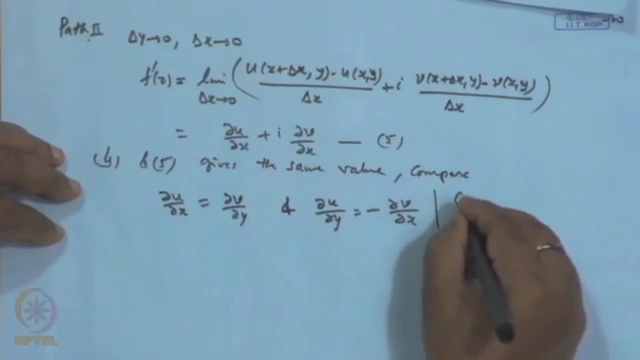 Path II Δy→0, Δx→0
f'(z) = lim Δx→0 ( u(x+Δx, y) - u(x,y) / Δx + i v(x+Δx, y) - v(x,y) / Δx )
= ∂u/∂x + i ∂v/∂x — (5)
(4) & (5) gives the same value, Compare
∂u/∂x = ∂v/∂y & ∂u/∂y = - ∂v/∂x |
NPTEL